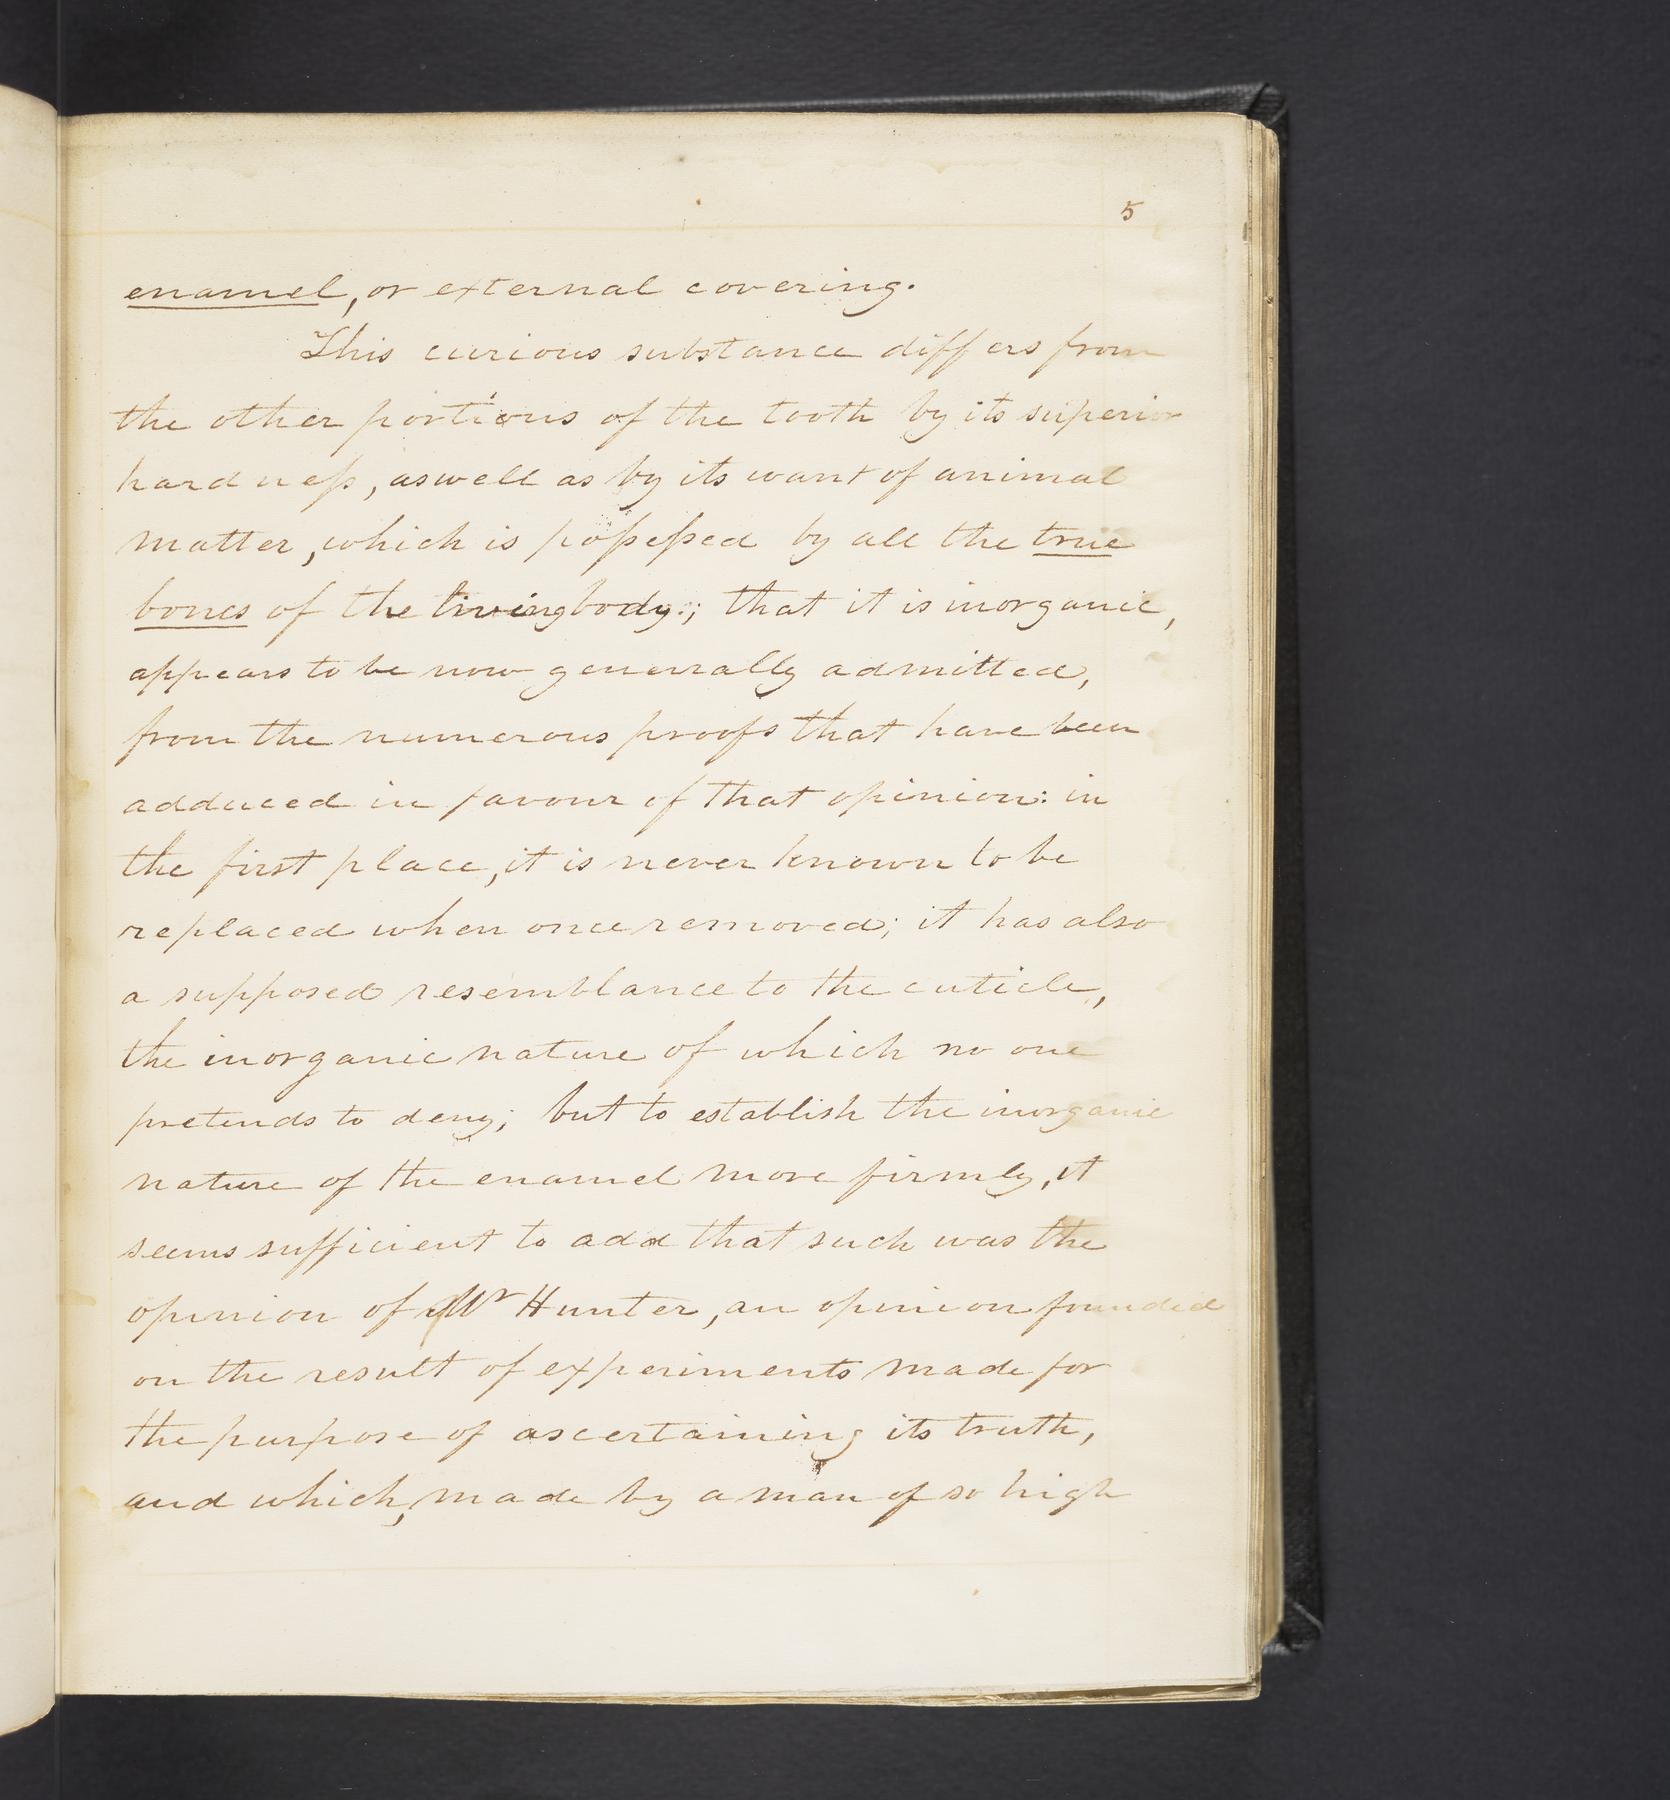 5
enamel, or external covering.
This curious substance differs from
the other portions of the tooth by its superior
hardneſs, aswell as by its want of animal
matter, which is poſseſsed by all the true
bones of the living body; that it is inorganic,
appears to be now generally admitted,
from the numerous proofs that have been
adduced in favour of that opinion: in
the first place, it is never known to be
replaced when once removed; it has also
a supposed resemblance to the cuticle,
the inorganic nature of which no one
pretends to deny; but to establish the inorganic
nature of the enamel more firmly, it
seems sufficient to add that such was the
opinion of Mr Hunter, an opinion founded
on the result of experiments made for
the purpose of ascertaining its truth,
and which, made by a man of so high